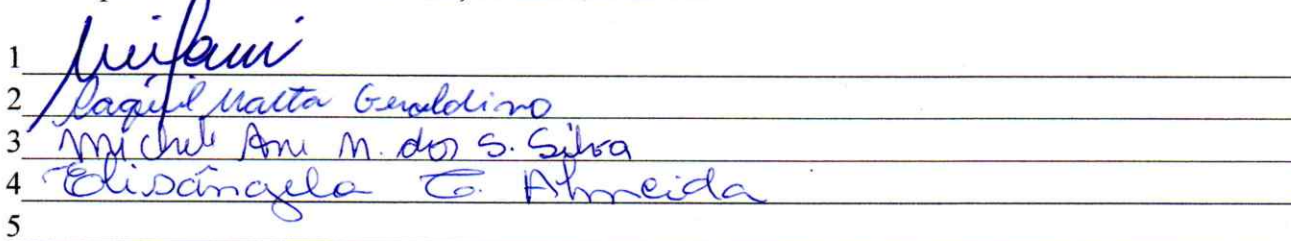 1
2 Raquel Malta Geraldino
3 Michele Ane M. dos S. Silva
4 Elisângela G. Almeida
5